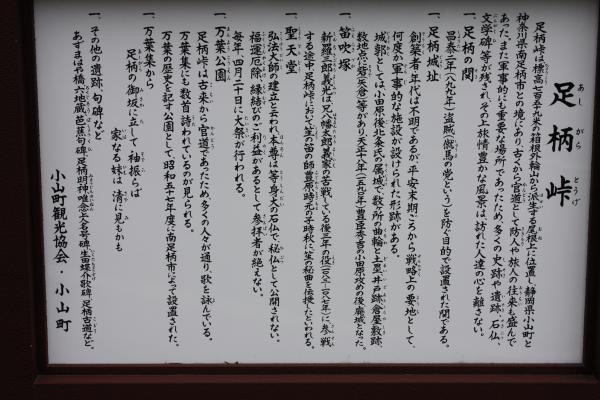 足柄峠
足柄峠は標高七百五十九米の箱根外輪山から派生する尾根上に位置し静岡県小山町と
神奈川県南足柄市との境にあり、古くから官道として防人や旅人の往来も盛んで
あった。また軍事的にも重要な場所であったため、多くの史跡や遺跡、石仏、
文学碑、等が残され、その上旅情豊かな風景は、訪れた人達の心を離さない。
一、足柄の関
昌泰二年(八九九年)盗賊(僦馬の党という)を防ぐ目的で設置された関である。
一、足柄城址
創築者、年代は不明であるが、平安末期ごろから戦略上の要地として、
何度か軍事的な施設が設けられた形跡がある。
城郭としては、小田原後北条氏の属城で、数ヶ所の曲輪と土塁、井戸跡、倉屋敷跡、
数地点に砦があり、天正十八年(一五九〇年)豊臣秀吉の小田原攻めの後廃城となった。
一、笛吹塚
新羅三郎義光は兄八幡太郎義家の苦戦している後三年の役(一〇八三〜一〇八七年)に参戦
する途中、足柄峠において、笙の笛の師豊原時元の子時秋に笙の秘曲を伝授したといわれる。
一、聖天堂
弘法大師の建立と云われ本尊は等身大の石仏で秘仏として公開されない。
福運厄除、縁結びのご利益があるとして参拝者が絶えない。
毎年四月二十日に大祭が行われる。
一、万葉公園
足柄峠は古来から官道であったため多くの人々が通り、歌を詠んでいる。
万葉集にも数首詩われているのが見られる。
万葉の歴史を記す公園として昭和五十七年度に南足柄市によって設置された。
一、万葉集から
足柄の御坂に立して袖振らば
家なる妹は清に見もかも
一、その他の遺跡、句碑など
あずまはや橋、六地蔵、芭蕉句碑、足柄明神、唯念上人名号碑、生田蝶介歌碑、足柄古道など。
小山町観光協会・小山町